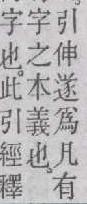 引伸遂爲凡有
字之本義也
字也此引經釋